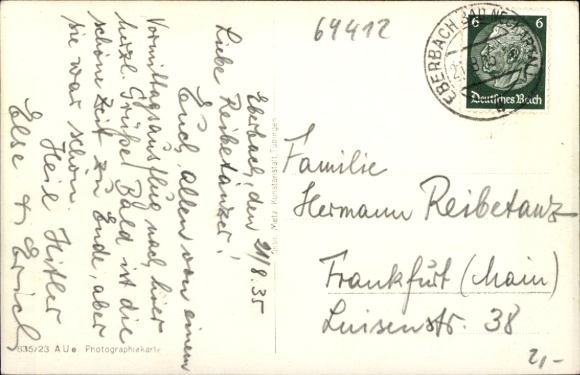 64412
EBERBACH
6 6
Deutsches Reich
Eberbach, den 21/8.35
Liebe Reibetänzer!
Euch allen von einem
Vormittagsausflug nach hier
herzl. Grüße! Bald ist die
schöne Zeit zu Ende, aber
sie war schön.
Heil Hitler
Else & Erich
Familie
Hermann Reibetanz
Frankfurt (Main)
Luisenstr. 38
2,-
Metz, Kunstanstalt, Tübingen
835/23 AUe Photographiekarte